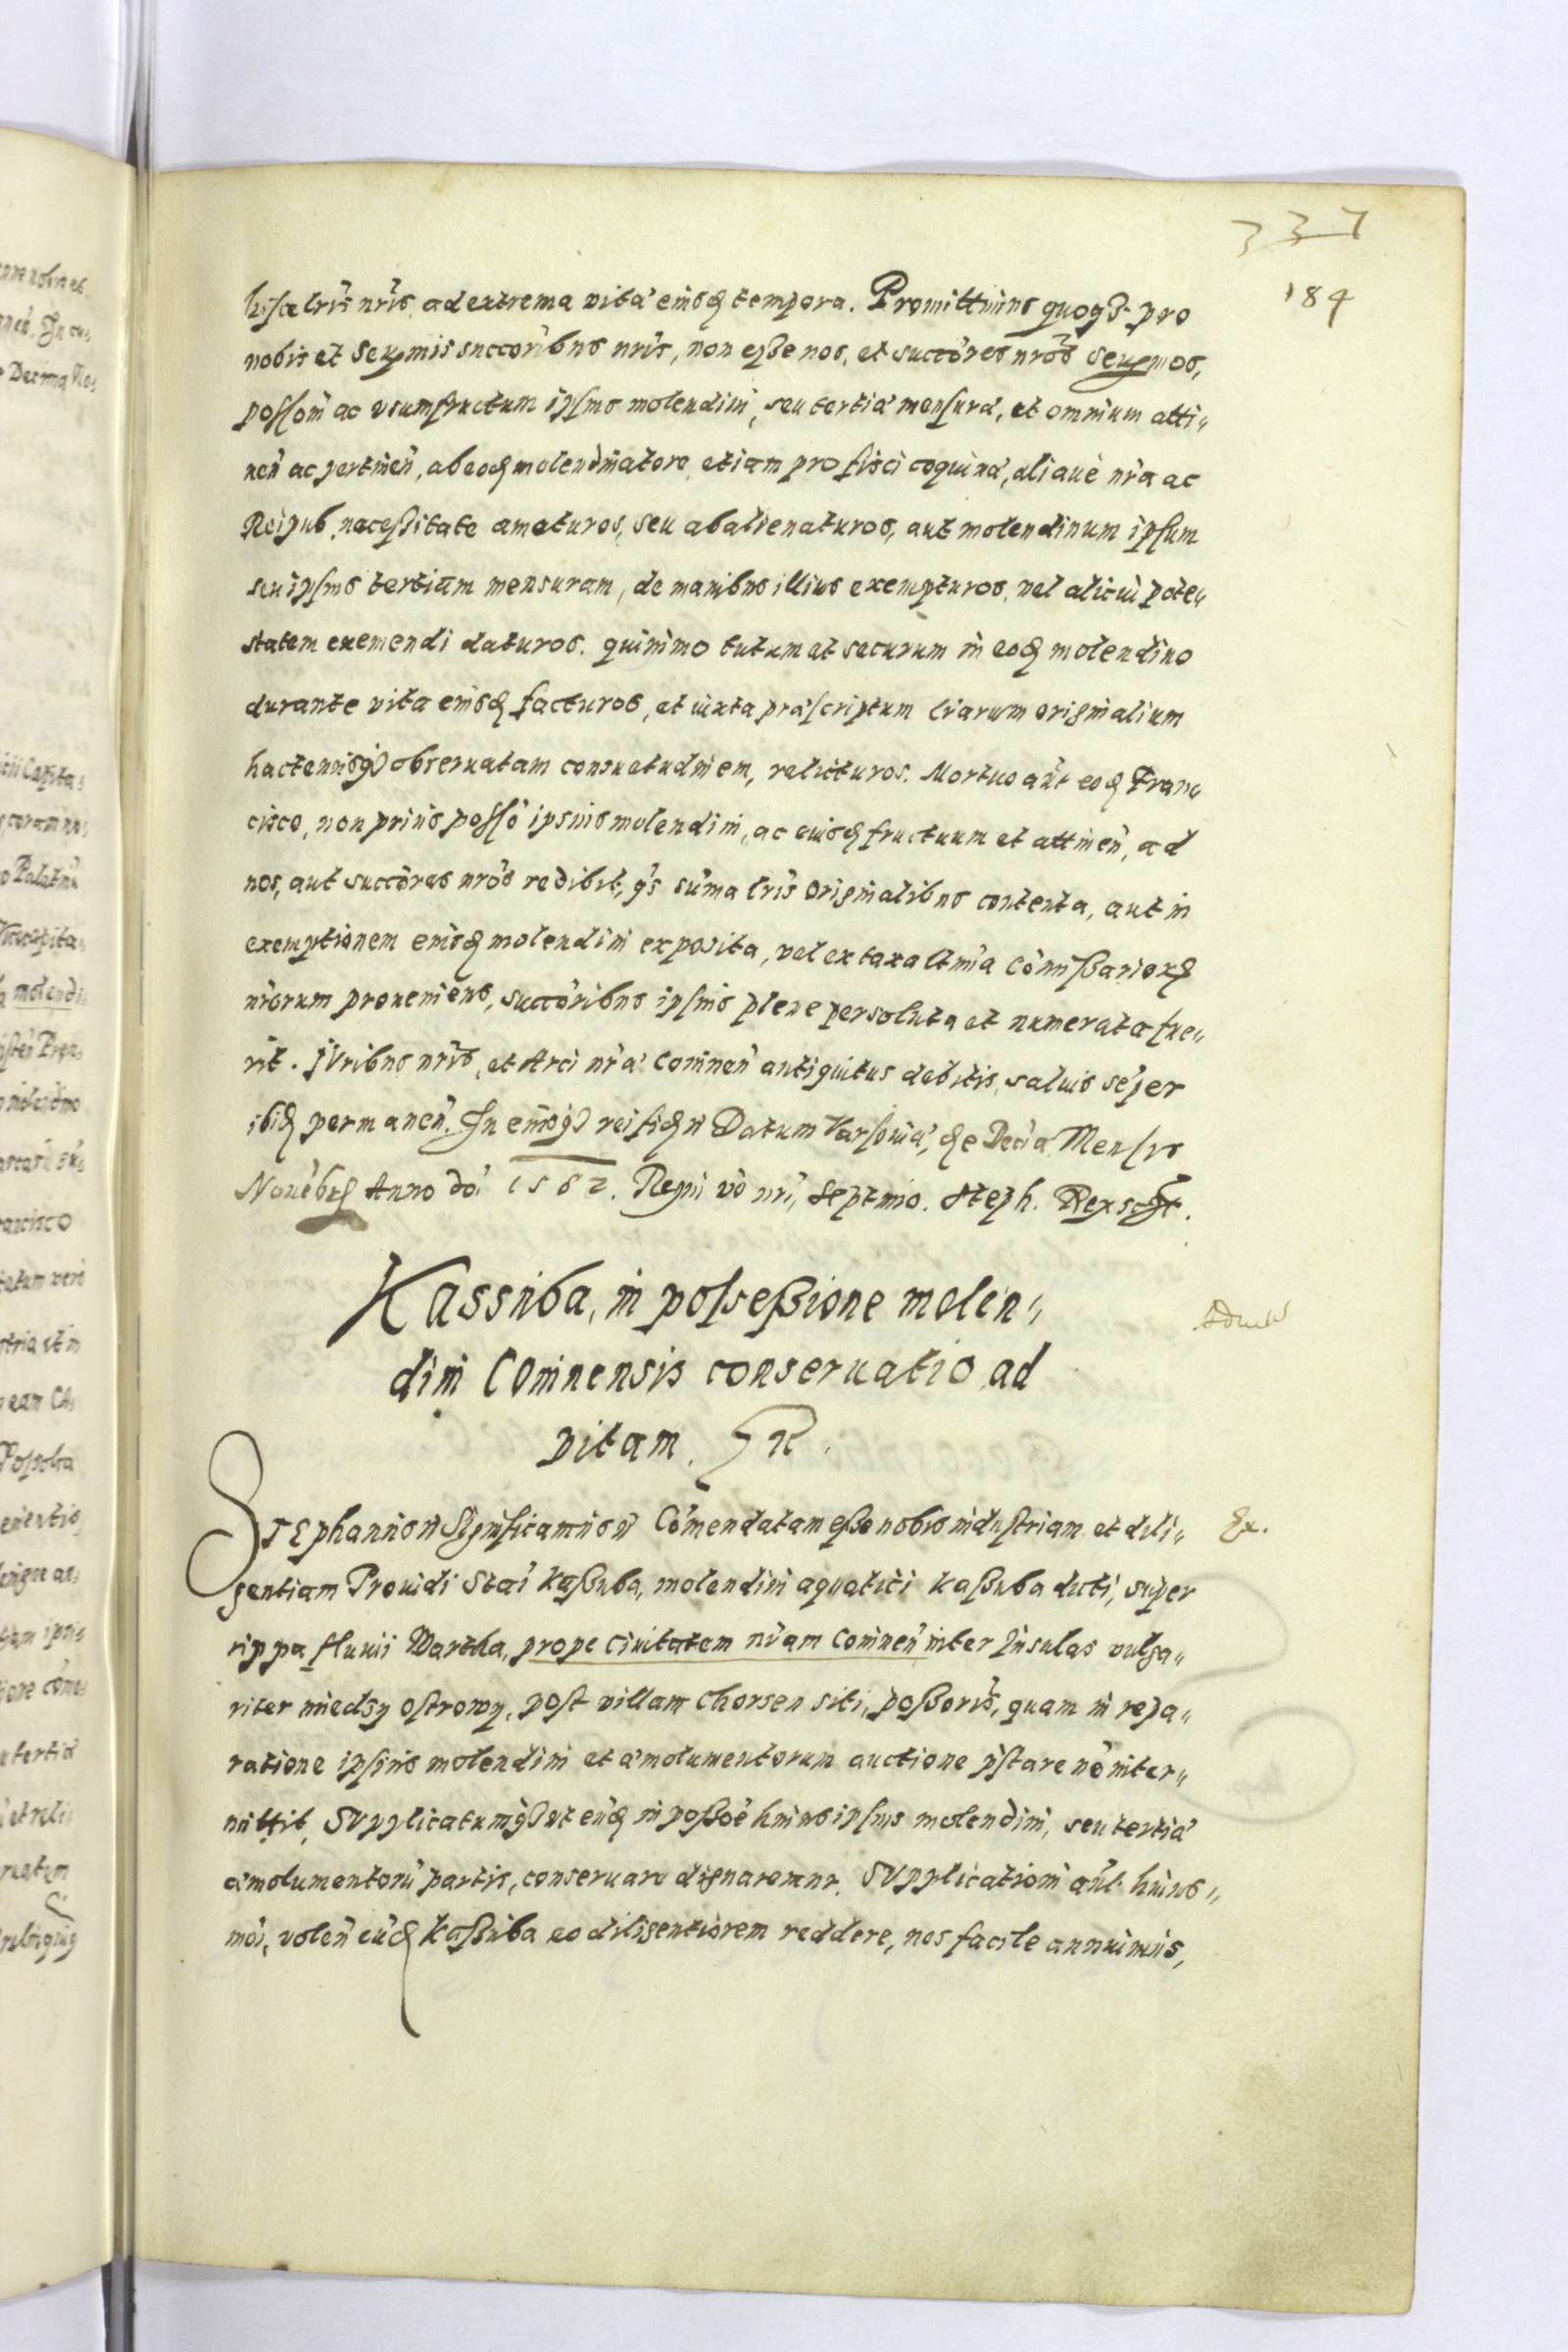 337
184
hisce lris nris, ad extrema vitae eiusdem tempora. Promittimus quoque pro
nobis et sermis succoribus nris, non esse nos, et succores nros sermos,
possom ac usumfructum ipsius molendini, seu tertiae mensurae, et omnium atti„
nen ac pertinen, ab eodem molendinatore, etiam pro fisci coquina, aliave nra ac
Reipub. necessitate amoturos, seu abalienaturos, aut molendinum ipsum
seu ipsius tertiam mensuram, de manibus illius exempturos, vel alicui pote„
statem eximendi daturos. quinimo tutum et securum in eodem molendino
durante vita eiusdem facturos, et iuxta praescriptum lrarum originalium
hactenusque observatam consuetudinem, relicturos. Mortuo aut eodem Fran„
cisco, non prius posso ipsius molendini, ac eiusdem fructuum et attinen, ad
nos, aut succores nros redibit, qs suma lris originalibus contenta, aut in
exemptionem eiusdem molendini exposita, vel ex taxa Comissariorum
nrorum proveniens, succoribus ipsius plene persoluta et numerata fue„
rit. Iuribus nris, et Arci nrae Coninen antiquitus debitis, salvis seper
ibidem permanen. In cuiusque rei fidem Datum Varsoviae, die Decia Mensis
Novebris Anno doi 1582. Regni vo nri, septimo. Steph. Rex sst.
Kassuba, in possessione molen„
dini Coninensis conservatio ad
vitam.
Ex.
Stephanus Significamus Comendatam esse nobis industriam et dili„
gentiam Providi Stai Kassuba, molendini aquatici Kassuba dicti, super
rippa fluvii Wartha, prope Civitatem nram Coninen inter Insulas vulga„
riter miedzy ostrowy, post villam Chorzen siti, possoris, quam in repa„
ratione ipsius molendini et emolumentorum auctione pstare no inter„
mittit, Supplicatumque ut eudem in possoe huius ipsius molendini, seu tertiae
emolumentoru partis, conservare dignaremur. Supplicationi aut huius„
moi, volen eudem Kassuba eo diligentiorem reddere, nos facile annuimus,